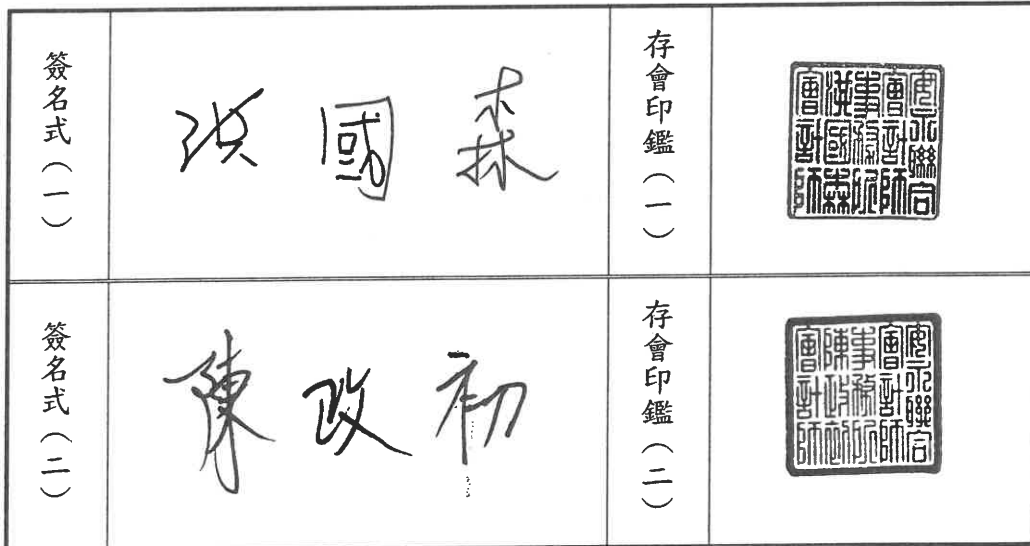 簽名式（一）
洪國森
存會印鑑（一）
安永聯合
會計師
事務所
洪國森
會計師
簽名式（二）
陳政初
存會印鑑（二）
安永聯合
會計師
事務所
陳政初
會計師